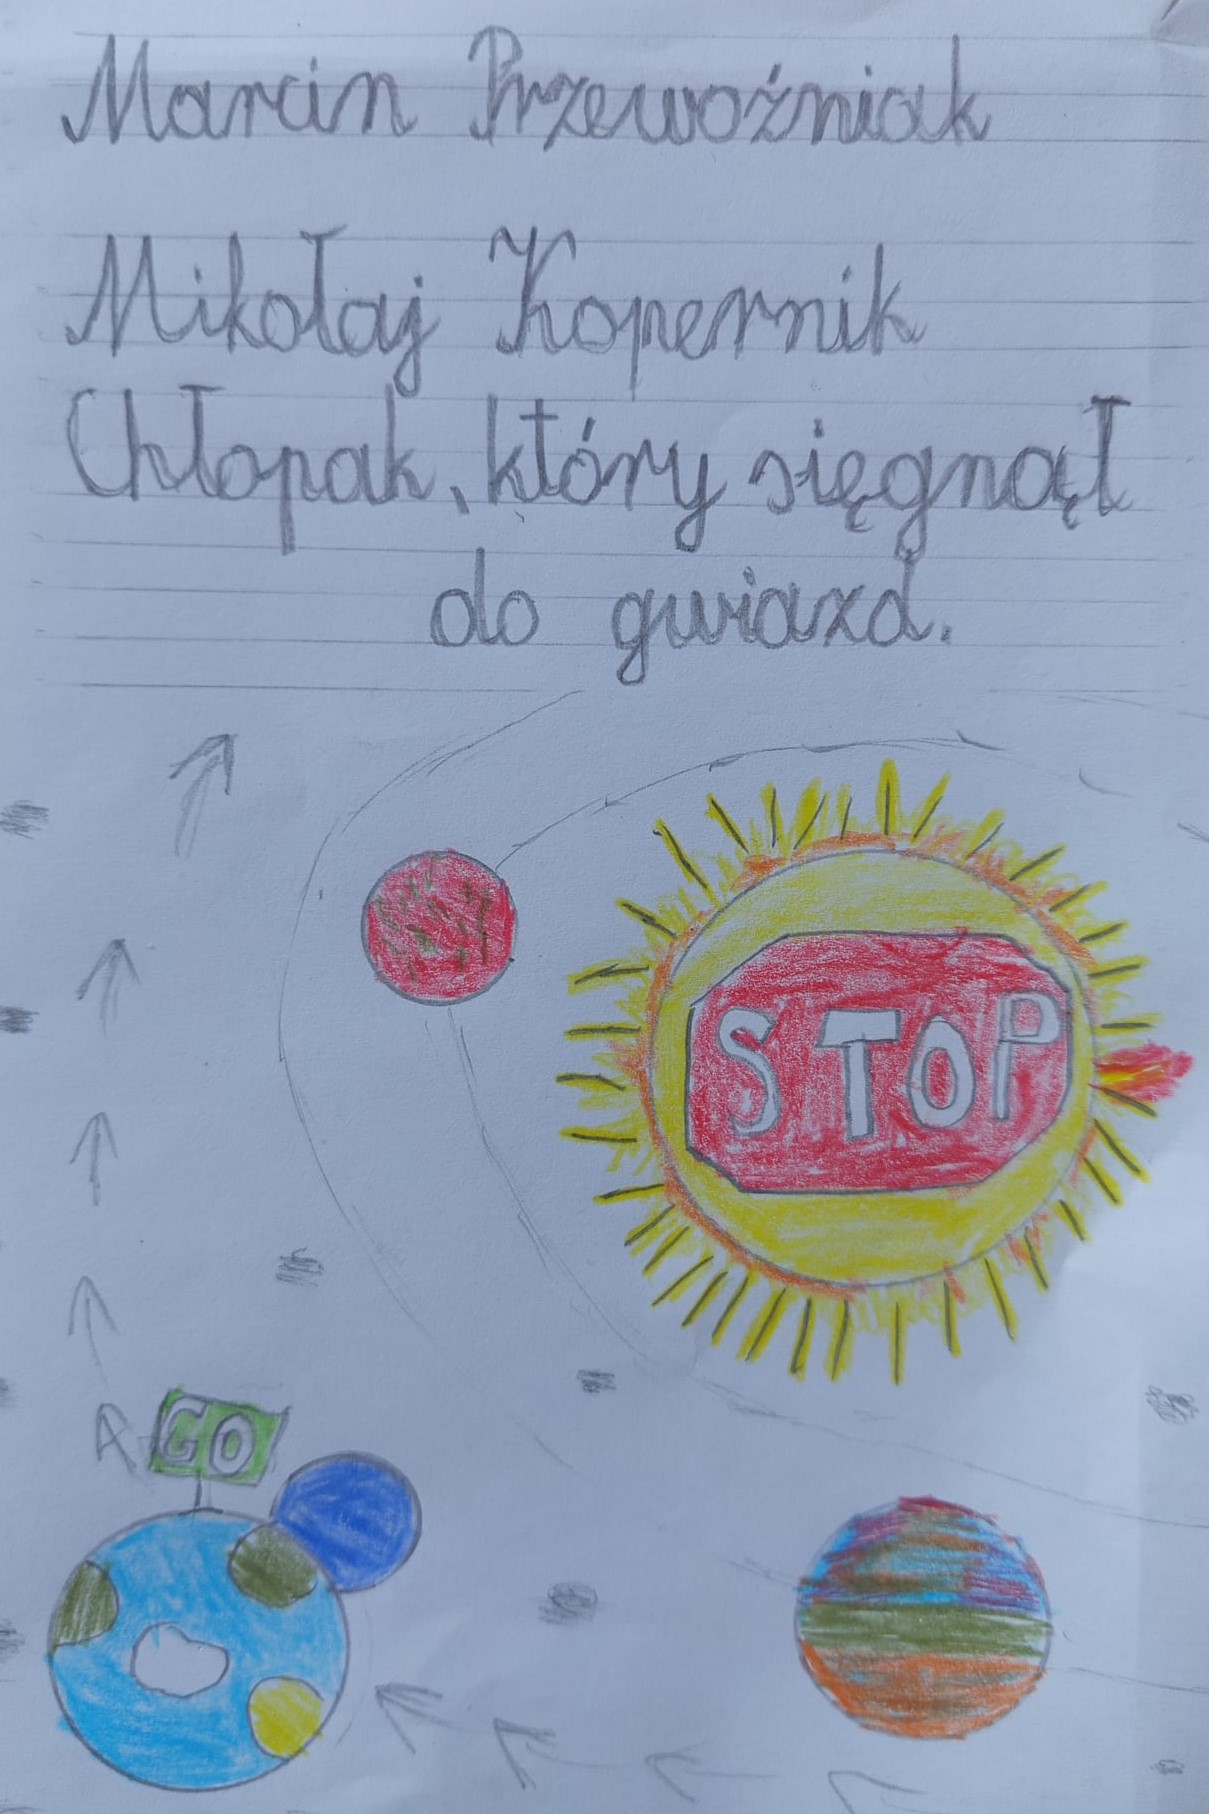 Marcin Przewoźniak
Mikołaj Kopernik
Chłopak, który sięgnął
do gwiazd.
STOP
GO